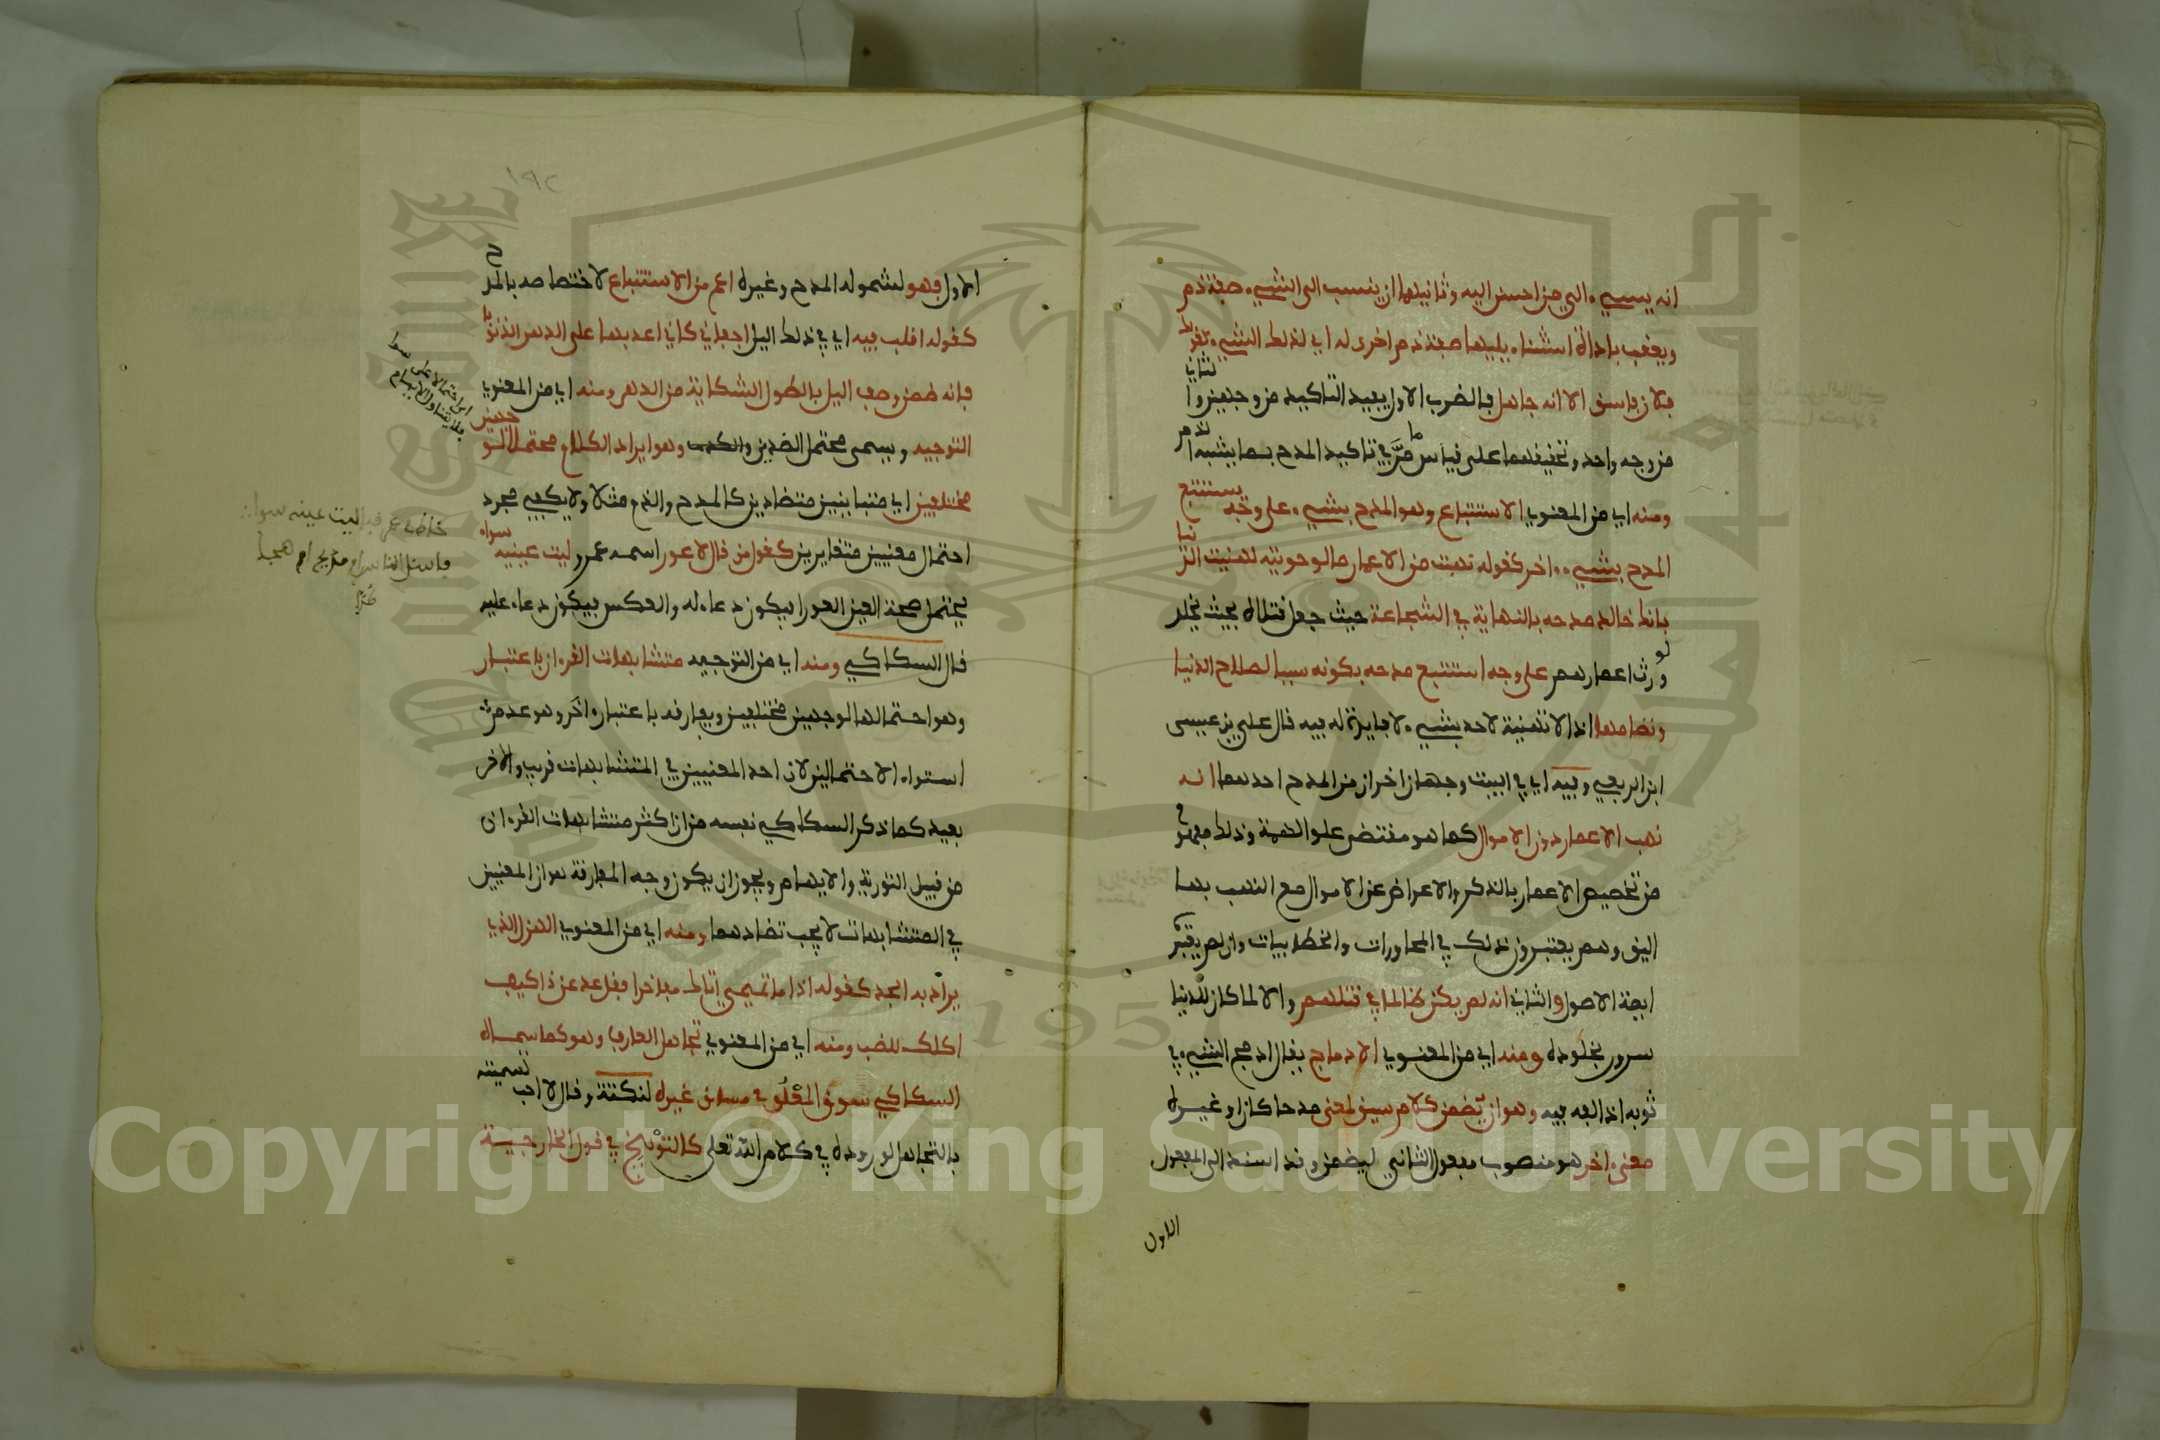 انه يسيء الى من احسن اليه وثانيهما ان ينسب الى الشيء صفة ذم
ويعقب باداة استثناء يليها صفة ذم اخرى له اي لذلك الشيء كقولك
فلان فاسق الا انه جاهل فالضرب الاول يفيد التاكيد من وجهين والثاني
من وجه واحد وتحقيقهما على قياس ما مر في تاكيد المدح بما يشبه الذم
ومنه اي من المعنوي الاستتباع وهو المدح بشيء على وجه يستتبع
المدح بشيء اخر كقوله نهبت من الاعمار ما لو حويته لهنيت الدنيا
بانك خالد مدحه بالنهاية في الشجاعة حيث جعل قتلاه بحيث يخلد
لو ورث اعمارهم على وجه استتبع مدحه بكونه سببا لصلاح الدنيا
ونظامها اذ لا تهنية لاحد بشيء لا فايدة له فيه قال علي بن عيسى
ابن الربعي وفيه اي في البيت وجهان اخران من المدح احدهما انه
نهب الاعمار دون الاموال كما هو مقتضى علو الهمة وذلك مفهوم
من تخصيص الاعمار بالذكر والاعراض عن الاموال مع ان النهب بها
اليق وهم يعتبرون ذلك في المحاورات والخطابيات وان لم يعتبره
ايمة الاصول والثاني انه لم يكن ظالما في قتلهم والا لما كان للدنيا
سرور بخلوده ومنه اي من المعنوي الادماج يقال ادمج الشيء في
ثوبه اذا لفه فيه وهو ان يضمن كلام سيق لمعنى مدحا كان او غيره
معنى اخر هو منصوب مفعول الثاني ليضمن وقد اسند الى المفعول
الاول
١٩٢
الاول فهو لشموله المدح وغيره اعم من الاستتباع لاختصاصه بالمدح
كقوله اقلب فيه اي في ذلك اليل اجفاني كاني اعد بها على الدهر الذنوبا
فانه ضمن وصف اليل بالطول الشكاية من الدهر ومنه اي من المعنوي
التوجيه ويسمى محتمل الضدين وهو ايراد الكلام محتملا لوجهين
مختلفين اي متباينين متضادين كالمدح والذم مثلا ولا يكفي مجرد
احتمال معنيين متغايرين كقول من قال لاعور اسمه عمرو ليت عينيه سواء
يحتمل صحة العين العورا فيكون دعاء له والعكس فيكون دعاء عليه
قال السكاكي ومنه اي من التوجيه متشابهات القرءان باعتبار
وهو احتمالها لوجهين مختلفين ويفارقه باعتبار اخر وهو عدم
استواء الاحتمالين لان احد المعنيين في المتشابهات قريب والاخر
بعيد كما ذكر السكاكي نفسه من ان اكثر متشابهات القرءان
من قبيل التورية والايهام ويجوز ان يكون وجه المفارقة هو ان المعنيين
في المتشابهات لا يجب تضادهما ومنه اي من المعنوي الهزل الذي
يراد به الجد كقوله اذا ما تميمي اتاك مفاخرا فقل عد عن ذا كيف
اكلك للضب ومنه اي من المعنوي تجاهل العارف وهو كما سماه
السكاكي سوق المعلوم مساق غيره لنكتة وقال لا احب تسميته
بالتجاهل لوروده في كلام الله تعلى كالتوبيخ في قول الخارجية
اي احتمالا على سوا
فلا يتناول الايهام
خاط لي عمرو قبا ليت عينيه سواء
فاسئل الناس امديح ام هجا
Copyright © King Saud University
1957